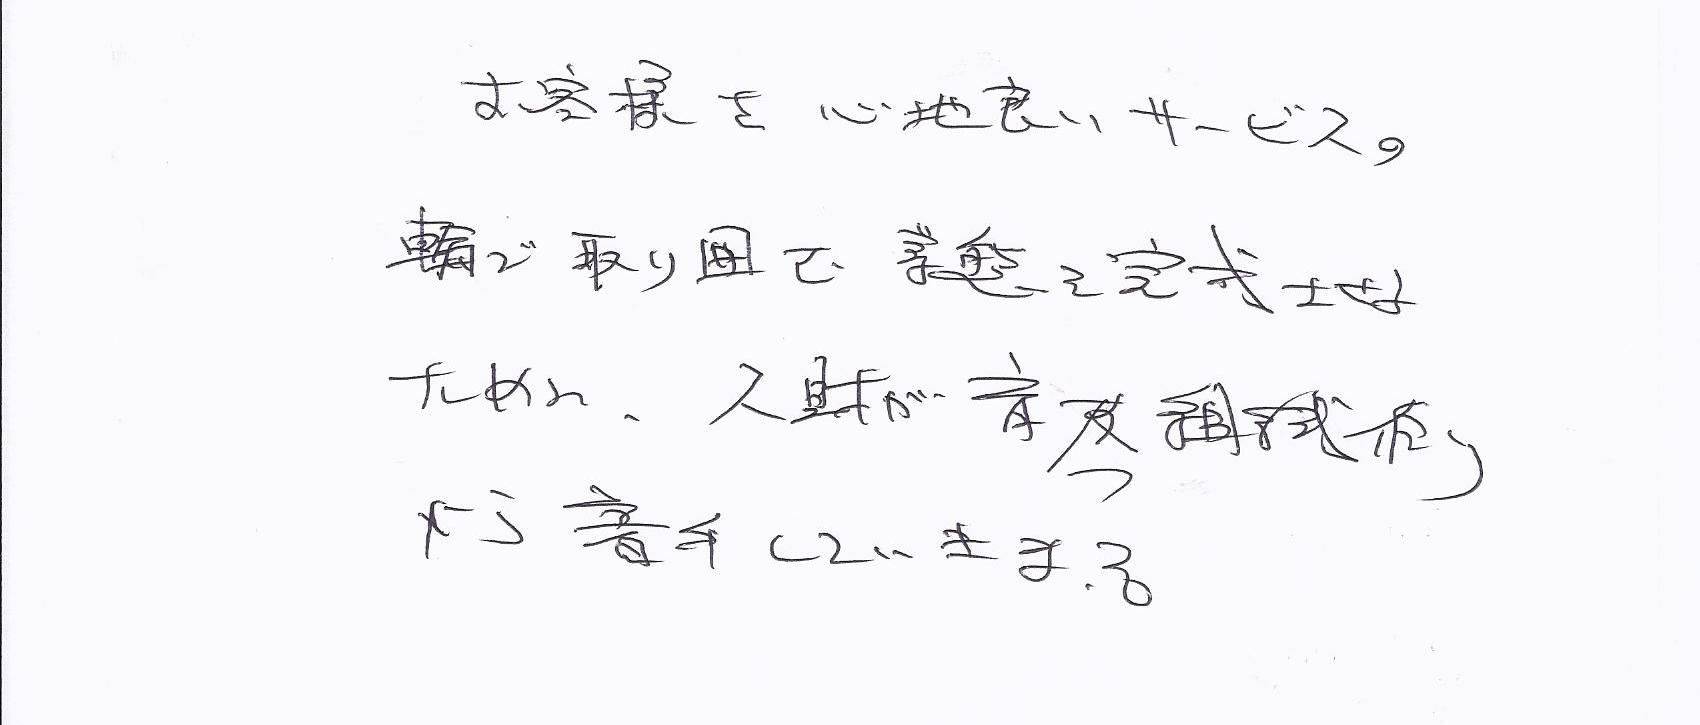 お客様を心地良いサービスの
輪で取り囲む 状態を完成させる
ために、人財が育つ組織作り
から着手しています。